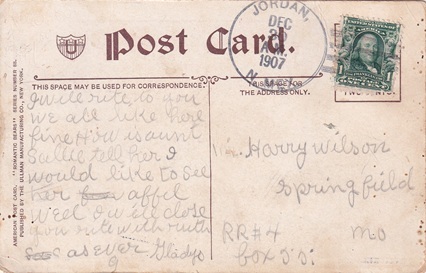 Post Card.
JORDAN,
DEC
1907
N.
THIS SPACE MAY BE USED FOR CORRESPONDENCE.
THIS SPACE IS FOR
THE ADDRESS ONLY.
AMERICAN POST CARD. "ROMANTIC BEARS" SERIES NUMBER 60.
PUBLISHED BY THE ULLMAN MANUFACTURING CO., NEW YORK.
I will rite to you
we all like here
fine How is aunt
Sallie tell her I
would like to see
her affil
well I will close
you rite with ruth
as ever Gladys
Harry Wilson
Springfield
RR#4 Mo
Box 55